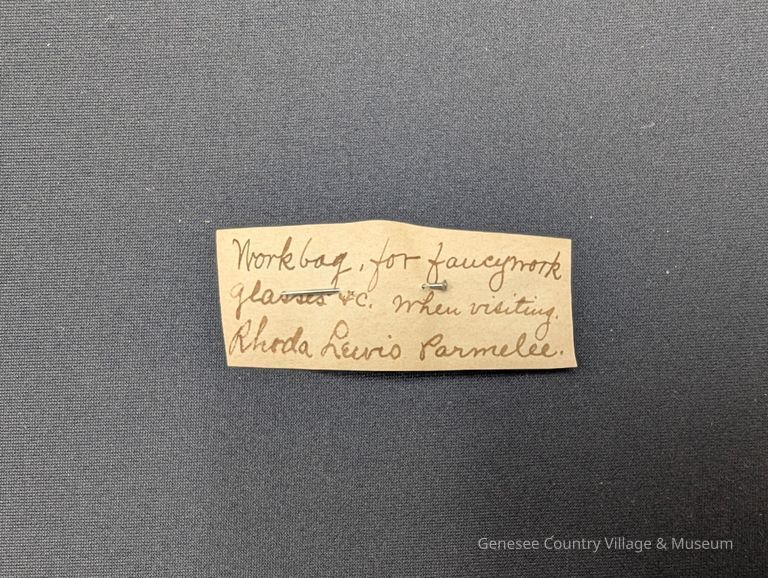 Workbag, for fancywork
glasses &c. When visiting.
Rhoda Lewis Parmelee.
Genesee Country Village & Museum